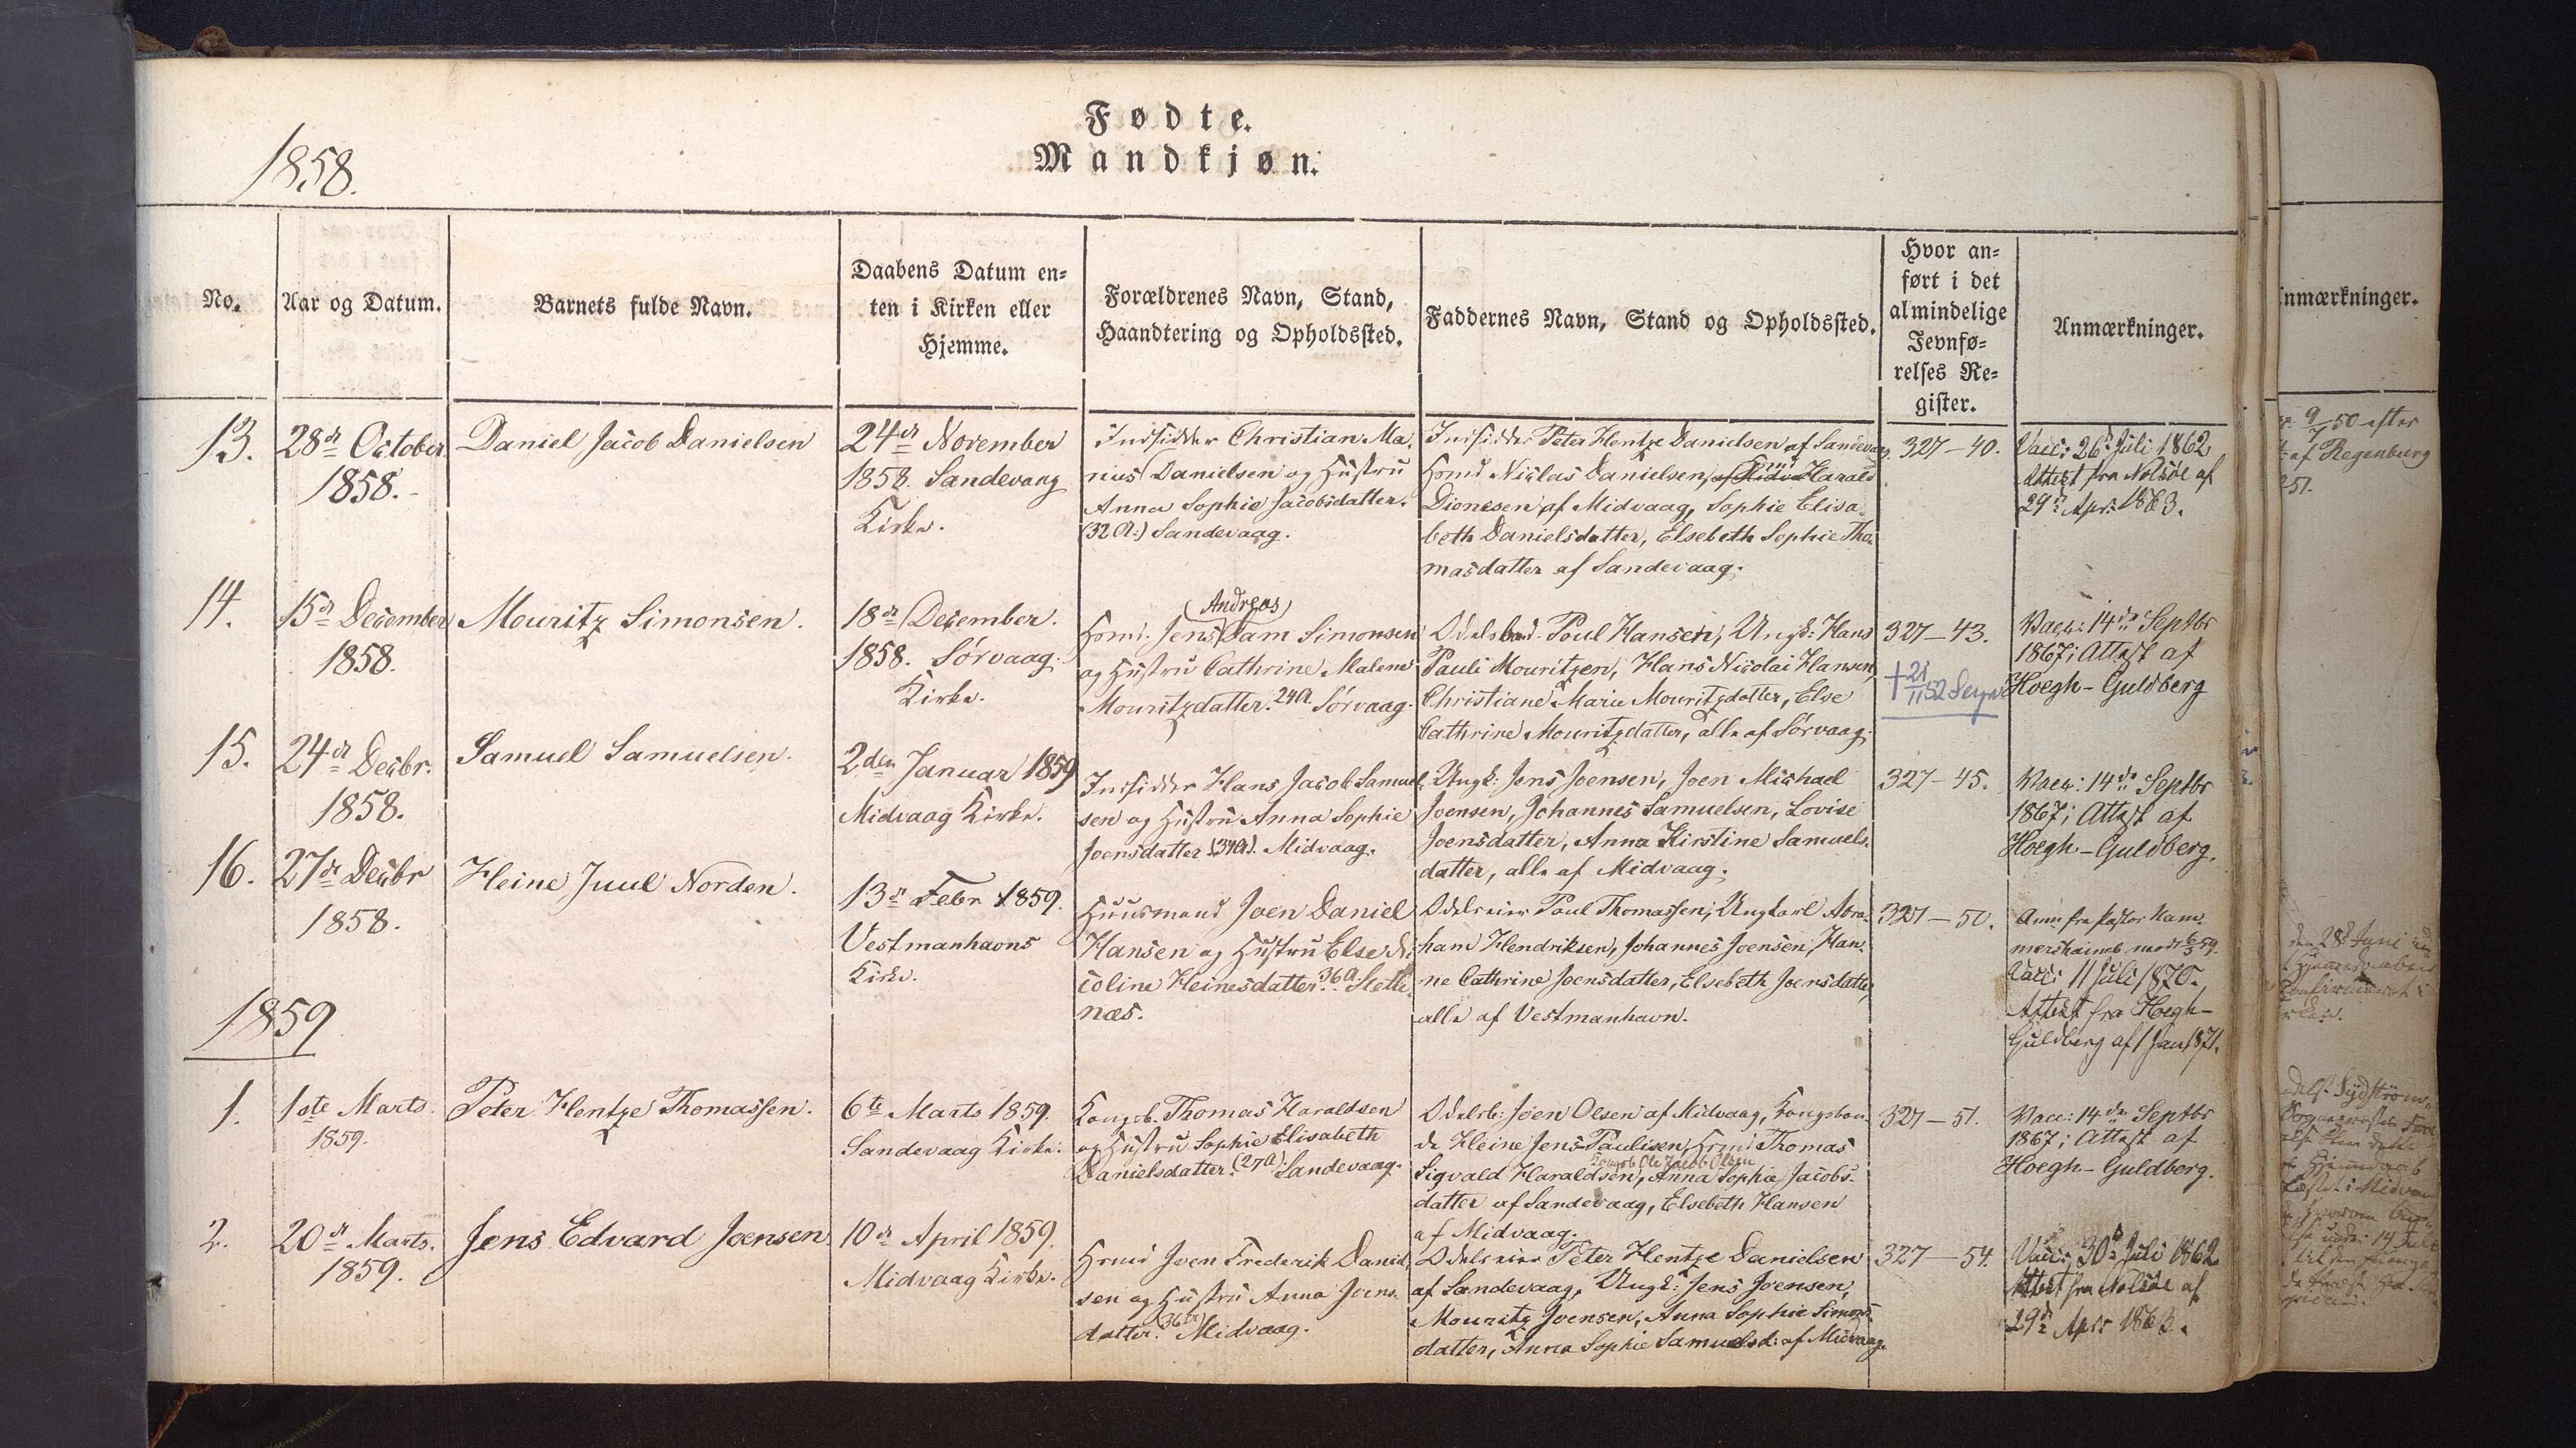 Fødte.
Mandkjøn.
1858.
No.
Aar og Datum.
Barnets fulde Navn.
Daabens Datum en-
ten i Kirken eller
Hjemme.
Forældrenes Navn, Stand,
Haandtering og Opholdssted.
Faddernes Navn, Stand og Opholdssted.
Hvor an-
ført i det
almindelige
Jevnfø-
relses Re-
gister.
Anmærkninger.
13.
28de October
1858.
Daniel Jacob Danielsen
24de November
1858. Sandevaag
Kirke.
Indsidder Christian Ma-
rius Danielsen og Hustru
Anna Sophie Jacobsdatter.
(32 A.) Sandevaag.
Indsidder Peter Hentze Danielsen af Sandevaag.
Niclas Danielsen, Harald
Dionesen af Midvaag, Sophie Elisa-
beth Danielsdatter, Elsebeth Sophie Tho-
masdatter af Sandevaag.
327-40.
Vacc: 26de Juli 1862
Attest fra Nolsøe af
29de Apr: 1863.
14.
15de December
1858.
Mouritz Simonsen.
18de December.
1858. Sørvaag
Kirke.
(Andreas)
Jens Dam Simonsen
og Hustru Cathrine Malene
Mouritzdatter. 24A. Sørvaag.
Poul Hansen, Ungk: Hans
Pauli Mouritzen, Hans Nicolai Hansen,
Christiane Marie Mouritzdatter, Else
Cathrine Mouritzdatter, alle af Sørvaag.
327-43.
† 21/11 52
Vacc: 14de Septbr
1867; Attest af
Hoegh-Guldberg
15.
24de Decbr.
1858.
Samuel Samuelsen.
2den Januar 1859
Midvaag Kirke.
Indsidder Hans Jacob Samuel-
sen og Hustru Anna Sophie
Joensdatter (34A). Midvaag.
Ungk: Jens Joensen, Joen Michael
Joensen, Johannes Samuelsen, Lovise
Joensdatter, Anna Kirstine Samuels-
datter, alle af Midvaag.
327-45.
Vacc: 14de Septbr
1867; Attest af
Hoegh-Guldberg.
16.
27de Decbr
1858.
Heine Juul Norden.
13de Febr 1859.
Vestmanhavns
Kirke.
Huusmand Joen Daniel
Hansen og Hustru Else Ni-
coline Heinesdatter. 36A.
næs.
Odelseier Poul Thomassen, Ungkarl Abra-
ham Hendriksen, Johannes Joensen, Han-
ne Cathrine Joensdatter, Elsebeth Joensdatter,
alle af Vestmanhavn.
327-50.
Anm fra Pastor Ham-
Vacc: 11 Juli 1870.
Attest fra Hoegh-
Guldberg af 1 Jan 1871.
1859
1.
1ste Marts
1859.
Peter Hentze Thomassen.
6te Marts 1859.
Sandevaag Kirke.
Kongsb. Thomas Haraldsen
og Hustru Sophie Elisabeth
Danielsdatter. (27A) Sandevaag.
Odelsb: Joen Olsen af Midvaag, Kongsbon-
de Heine Jens Paulisen, Thomas
Kongsb Ole Jacob Olsen
Sigvald Haraldsen, Anna Sophie Jacobs-
datter af Sandevaag, Elsebeth Hansen
af Midvaag.
327-51.
Vacc: 14de Septbr
1867; Attest af
Hoegh-Guldberg.
2.
20de Marts.
1859.
Jens Edvard Joensen
10de April 1859.
Midvaag Kirke.
Joen Frederik Daniel-
sen og Hustru Anna Joens-
datter. (36A) Midvaag.
Odelseier Peter Hentze Danielsen
af Sandevaag, Ungk: Jens Joensen,
Mouritz Joensen, Anna Sophie Simons-
datter, Anna Sophie Samuelsd: af Midvaag.
327-54.
Vacc: 30de Juli 1862
Attest fra Nolsøe af
29de Apr: 1863.
nmærkninger.
9/7 50 efter
af Regenburg
den 28de Juni